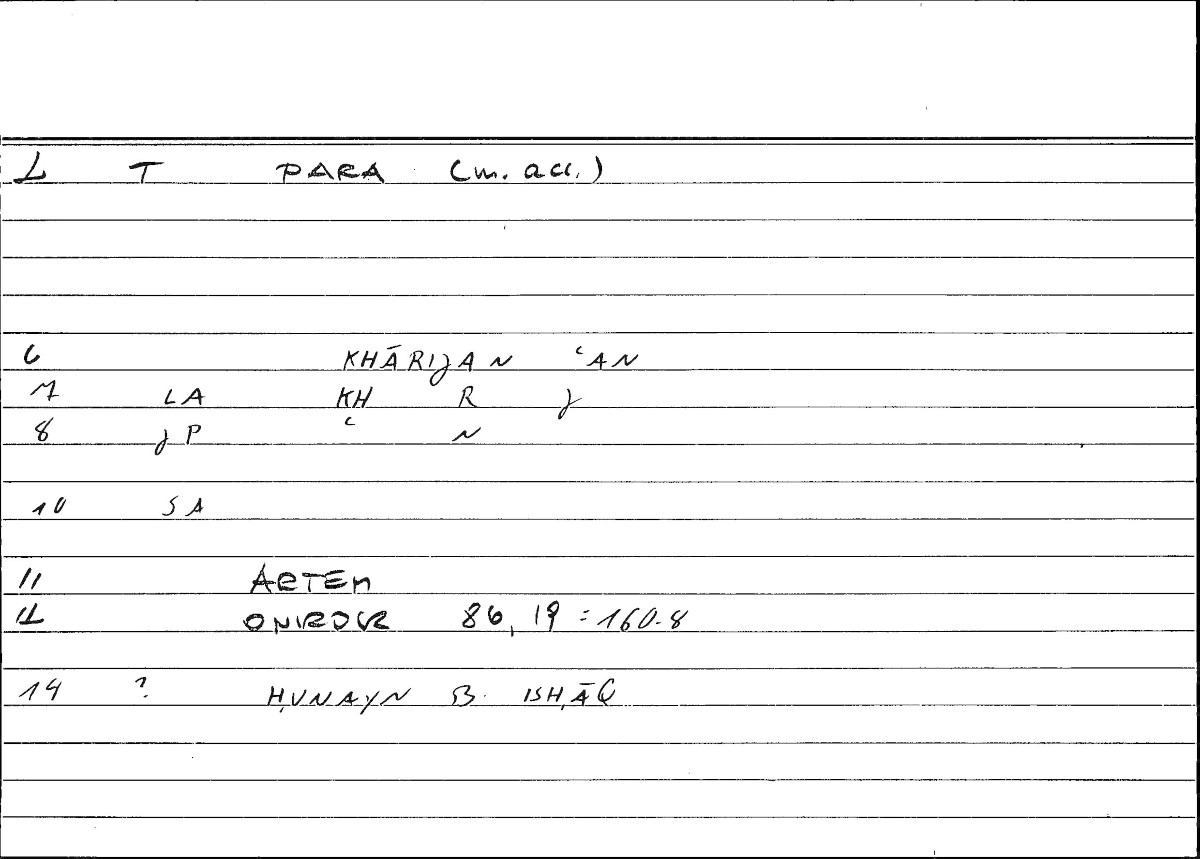 1 T PARA (m. acc.)
6 KHĀRIJAN ʿAN
7 LA KH R J
8 JP ʿ N
10 SA
11 ARTEM
12 ONIROCR 86, 19 = 160.8
14 ? ḤUNAYN B. ISḤĀQ